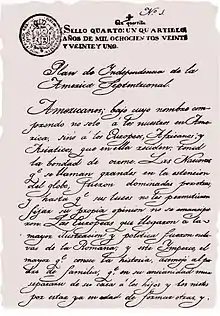 Nº 1.
Un quartillo
SELLO QUARTO: UN QUARTILLO
AÑOS DE MIL OCHOCIENTOS VEINTE
Y VEINTE Y UNO.
Plan de Independencia de la
America Septentrional.
Americanos; bajo cuyo nombre com-
prendo no solo a los nacidos en Ame-
rica, sino a los Europeos, Africanos, y
Asiaticos, que en ella residen: tened
la bondad de oirme. Las Naciones
q.e se llaman grandes en la estencion
del globo, fueron dominadas por otras;
y hasta q.e sus luces no les permitieron
fijar su propia opinion no se emancipa-
ron. Las Europeas que llegaron á la ma-
yor ilustracion y politica fueron escla-
vas de la Romana; y este Imperio, el
mayor q.e conoce la historia, asemejó al pa-
dre de familia, q.e en su ancianidad mira
separarse de su casa á los hijos y los nietos
por estar ya en edad de formar otras, y